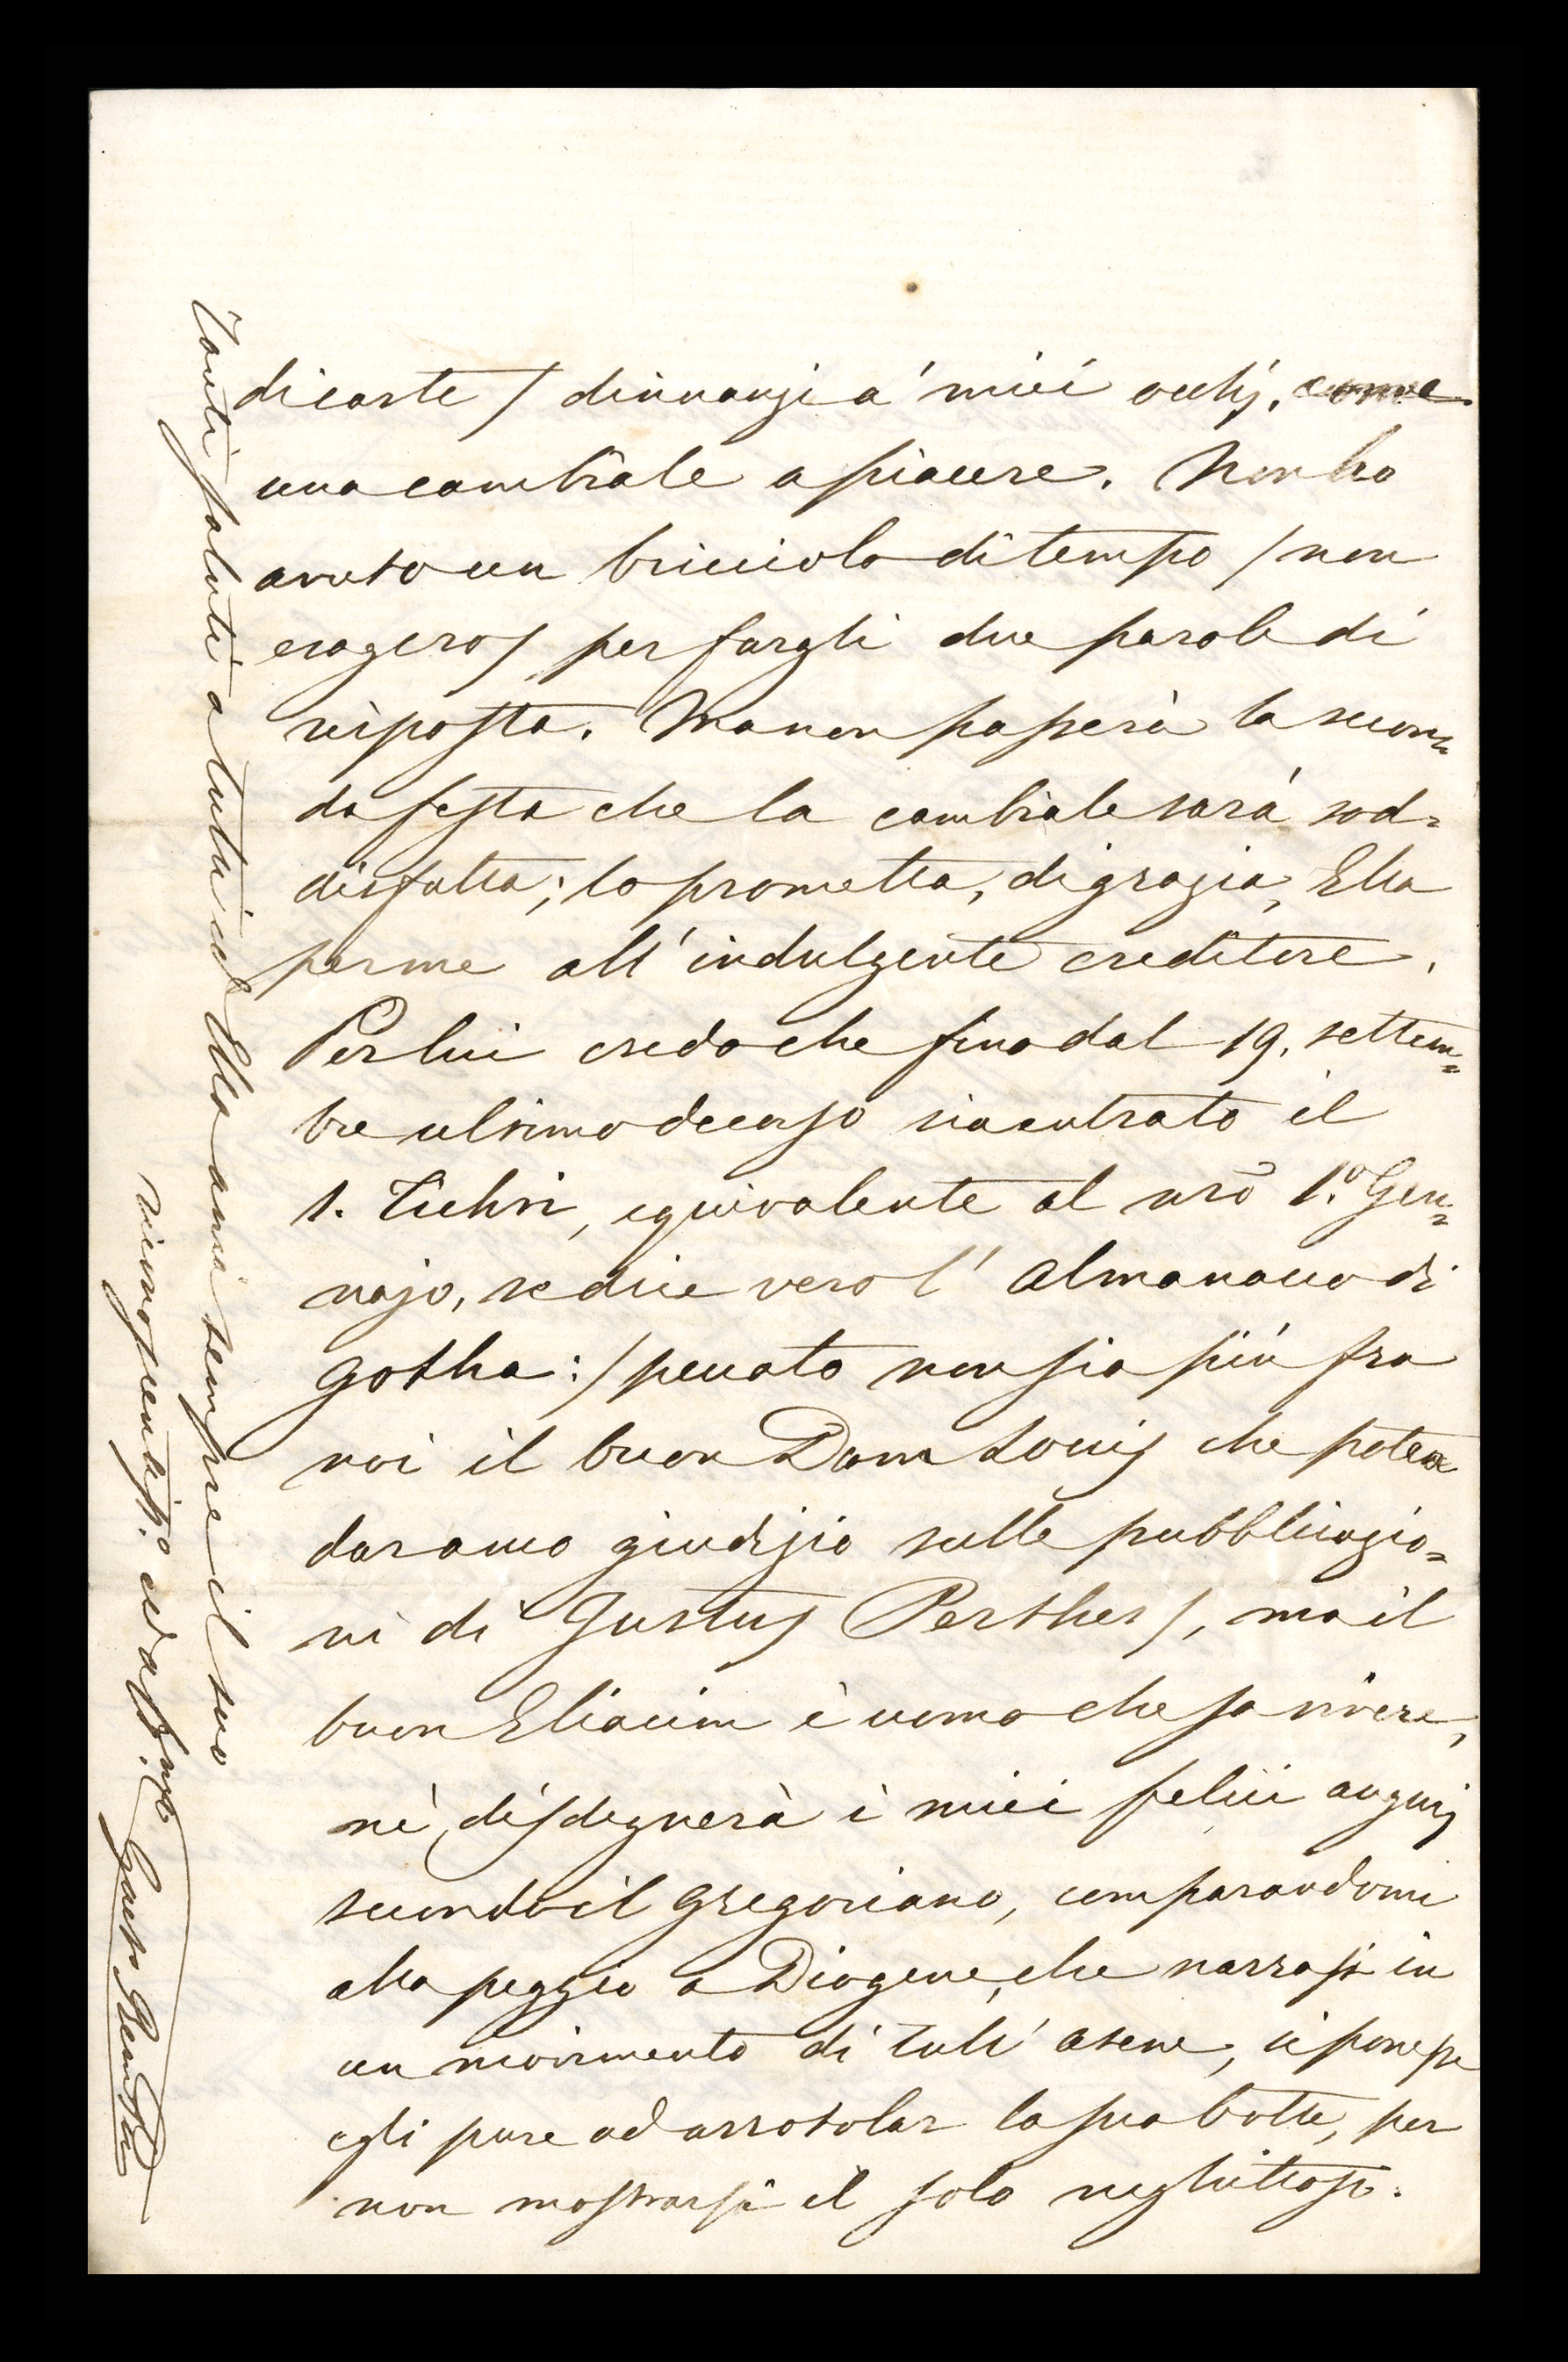 di carte / dinnanzi a' miei occhj, come
una cambiale a piacere. Non ho
avuto un bricciolo di tempo / non
esagero / per fargli due parole di
risposta. Ma non passerà la secon=
da festa che la cambiale sarà sod=
disfatta; lo prometta, di grazia, Ella
per me all'indulgente creditore.
Per lui credo che fino dal 19. settem=
bre ultimo decorso sia entrato il
1. Tischri, equivalente al nrō 1.º Gen=
najo, se dice vero l'Almanacco di
Gotha: / peccato non sia più fra
noi il buon Dom Louis che potea
dar amo giudizio sulle pubblicazio=
ni di Justus Perthes /, ma il
buon Eliacim è uomo che sa vivere,
nè disdegnerà i miei felici augurj
secondo il Gregoriano, comparandomi
alla peggio a Diogene, che narrasi in
un movimento di tutt'Atene, si ponesse
egli pure ad arrotolar la sua botte, per
non mostrarsi il solo neghittoso.
Tanti saluti a tutti ed Ella ami sempre il suo
riconoscentissº. ed aff.mo
Gaet